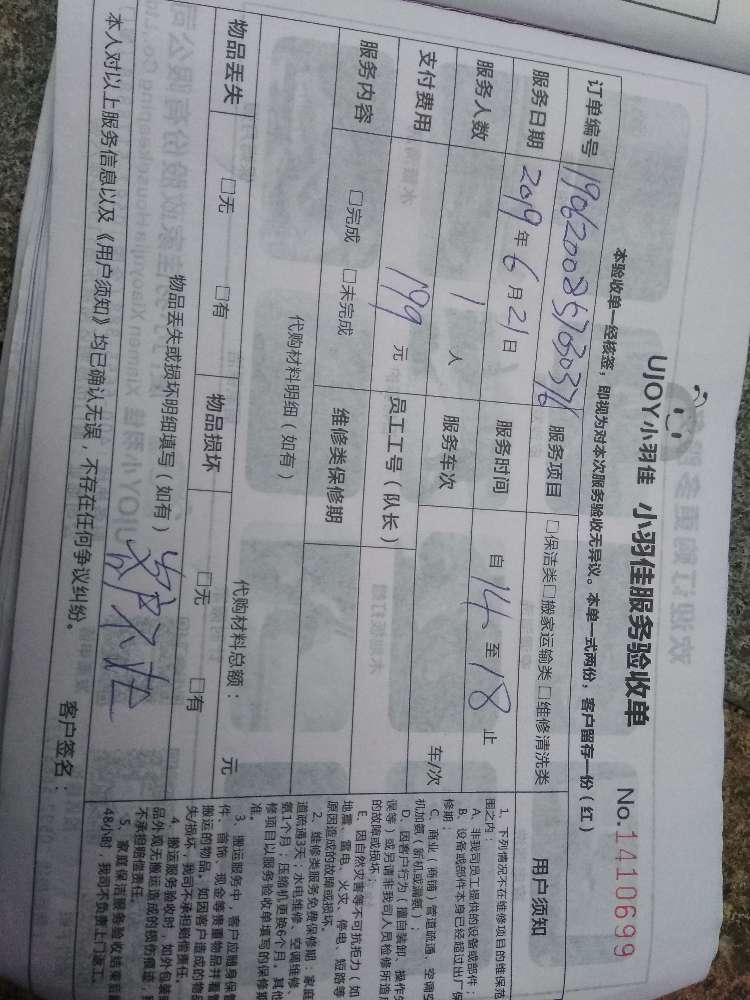 UJOY小羽佳 小羽佳服务验收单 No.1410699
本验收单一经核签，即视为对本次服务验收无异议。本单一式两份，客户留存一份（红）
订单编号 服务项目 □保洁类□搬家运输类□维修清洗类
服务日期 2019年6月21日 服务时间 自14至18止
服务人数 1人 服务车次 车/次
支付费用 199元 员工工号（队长）
服务内容 □完成 □未完成 维修类保修期
代购材料明细（如有） 代购材料总额： 元
物品丢失 □无 □有 物品损坏 □无 □有
物品丢失或损坏明细填写（如有）
本人对以上服务信息以及《用户须知》均已确认无误，不存在任何争议纠纷。
客户签名：
用户须知
1、下列情况不在维修项目的维保范
围之内：
A、非我司员工提供的设备或部件；
B、设备或部件本身已经超过出厂保
修期；
C、商业（商铺）管道疏通、空调空
机加氨（新机或漏氨）；
D、因客户行为（擅自装卸、操作失
误等）或另请非我司人员检修所造成
的故障或损坏；
E、因自然灾害等不可抗拒力（如
地震、雷电、火灾、停电、短路等
原因造成的故障或损坏。
2、维修类服务免费保修期：家庭
道疏通3天；水电维修、空调维修、
氨1个月；压缩机更换6个月，其他
修项目以服务验收单填写的保修期
准。
3、搬运服务中，客户应随身保管
件、首饰、现金等贵重物品并看管
搬运的物品，如因客户造成的物品
失/损坏，我司不承担赔偿责任。
4、搬运服务验收时，如外包装
品外观无搬运造成的损伤痕迹，
不承担赔偿责任。
5、家庭保洁服务验收结束后
48小时，我司不负责上门返工。